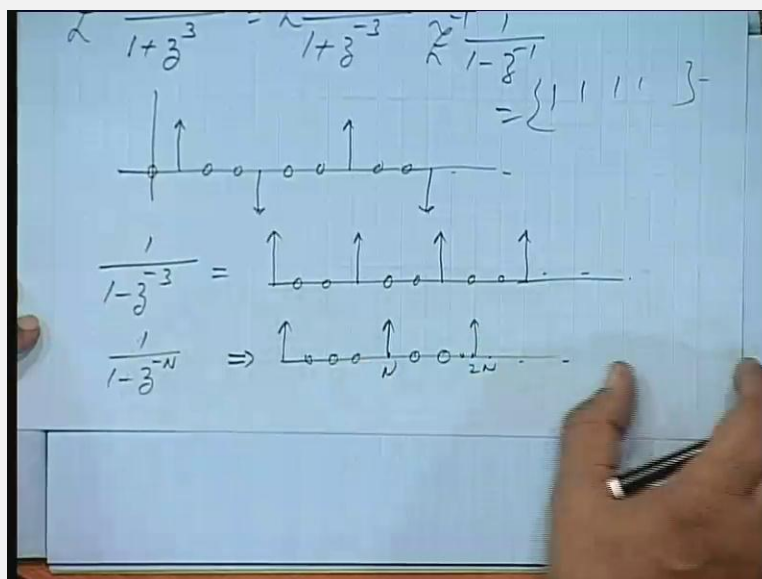 1+z^3 = 1+z^-3 Z^-1 1/(1-z^-1)
= { 1 1 1 1 } -
1/(1-z^-3) =
1/(1-z^-N) ⇒
N 2N